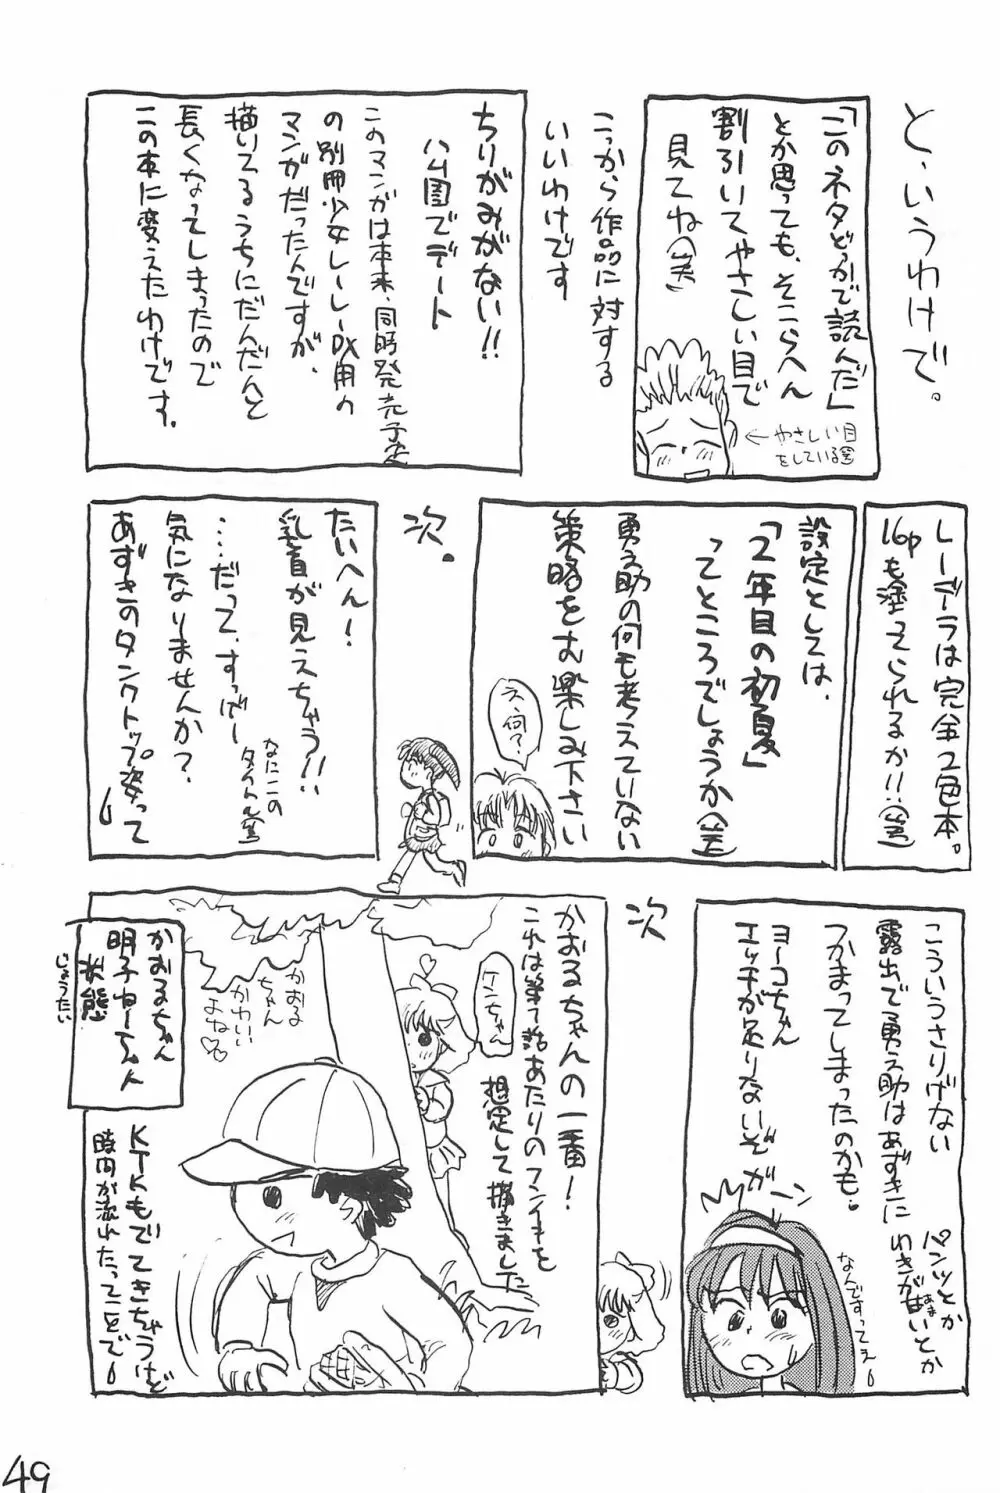 と、いうわけで。
「このネタどっかで読んだ」
とか思っても、そこらへん
割引いてやさしい目で
見てね(笑)
←やさしい目
をしている(笑)
こっから作品に対する
いいわけです
ちりがみがない!!
ハム園でデート
このマンガは本来、同時発売予定
の別冊少女レーレーDX用の
マンガだったんですが、
描いてるうちにだんだんと
長くなってしまったので
この本に変えたわけです。
レーデラは完全2色本。
16pも塗ってられるか!!(笑)
設定としては、
「2年目の初夏」
ってところでしょうか(笑)
勇之助の何も考えていない
策略をお楽しみ下さい
え、何?
次。
たいへん!
乳首が見えちゃう!!
なにこの
タイトル(笑)
……だって、すっげー
気になりませんか?
あずきのタンクトップ姿って
こういうさりげない
露出で勇之助はあずきに
つかまってしまったのかも。
パンツとか
わきが甘いとか
ヨーコちゃん
エッチが足りないぞ
ガーン
なんですってえー
次
かおるちゃんの一番!
これは第て話あたりのフンイキを
想定して描きました
ケンちゃん
かおる
ちゃん
かわいい
よね♡♡
かおるちゃん
明子ねーちゃん
状態
じょうたい
KTKもでてきちゃうけど
時間が流れたってことで
49